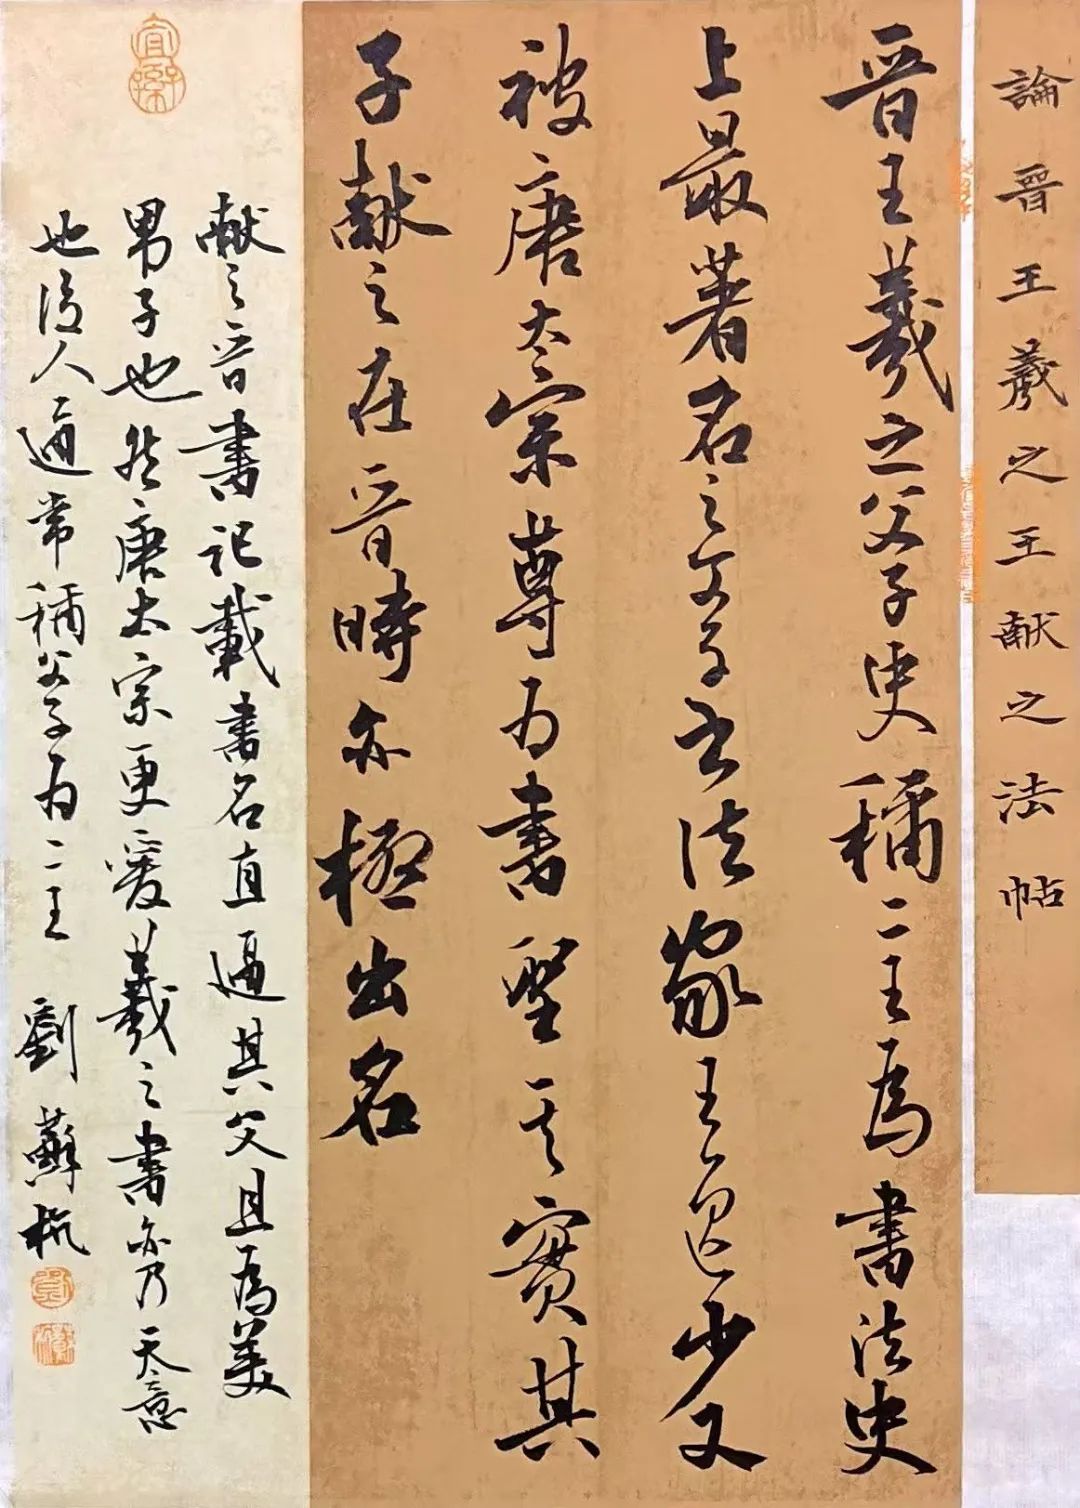 論晉王羲之王献之法帖
晋王羲之父子史稱二王為書法史
上最著名之父子书法家王逸少又
被唐太宗尊为書聖其實其
子献之在晋時亦極出名
献之晋書記載書名直逼其父且為美
男子也然唐太宗更爱羲之書亦乃天意
也後人通常稱父子为二王 劉蘇杭